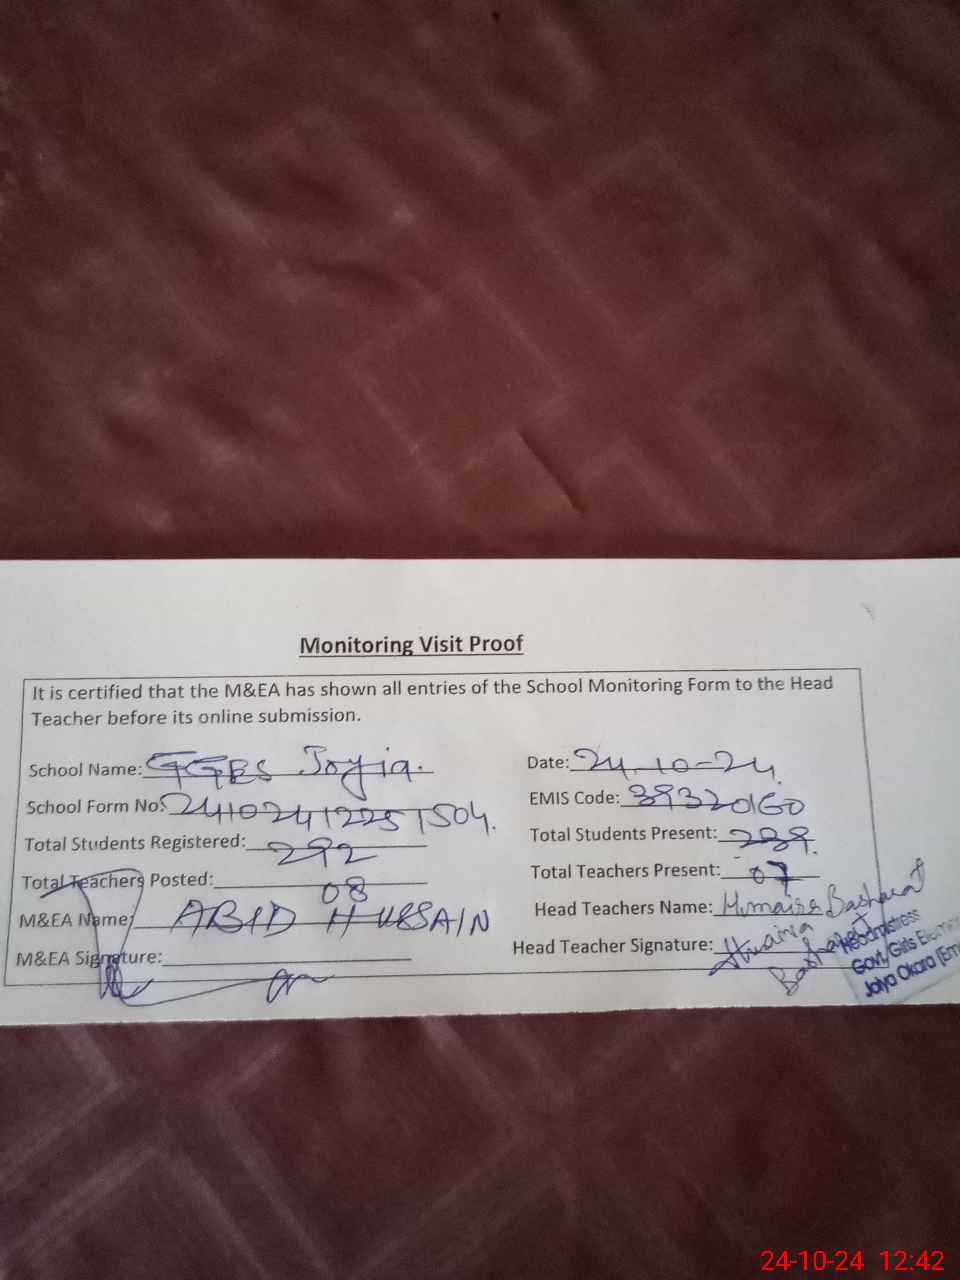 Monitoring Visit Proof
It is certified that the M&EA has shown all entries of the School Monitoring Form to the Head
Teacher before its online submission.
School Name: GGES Joyia. Date: 24-10-24
School Form No: 241024122251504. EMIS Code: 39320160
Total Students Registered: 292 Total Students Present: 289.
Total Teachers Posted: 08 Total Teachers Present: 07
M&EA Name: ABID HUSSAIN Head Teachers Name: Humaira Basharat
M&EA Signature: Head Teacher Signature: Humaira
Basharat
Headmistress
Govt. Girls
Okara
24-10-24 12:42